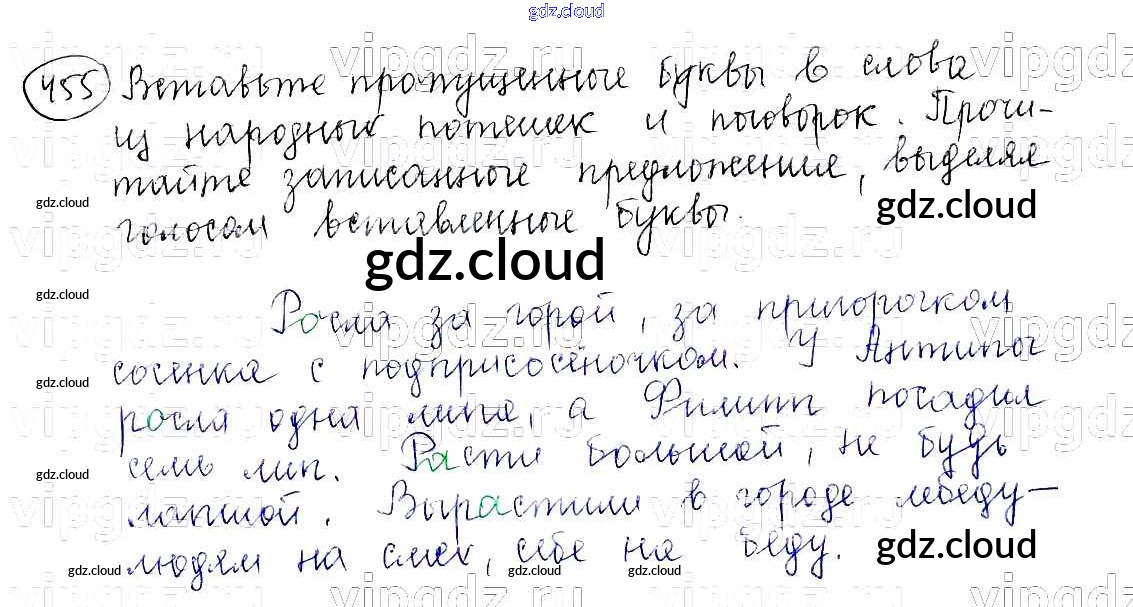 gdz.cloud
455 Вставьте пропущенные буквы в слова
из народных потешек и поговорок. Прочи-
тайте записанные предложения, выделяя
голосом вставленные буквы.
gdz.cloud
gdz.cloud
gdz.cloud
gdz.cloud
Росла за горой, за пригорочком
сосенка с подприсосёночком. У Антипы
gdz.cloud
росла одна липа, а Филипп посадил
семь лип. Расти большой, не будь
gdz.cloud
лапшой. Вырастили в городе лебеду –
людям на смех, себе на беду.
gdz.cloud
gdz.cloud
gdz.cloud
gdz.cloud
vipgdz.ru vipgdz.ru vipgdz.ru